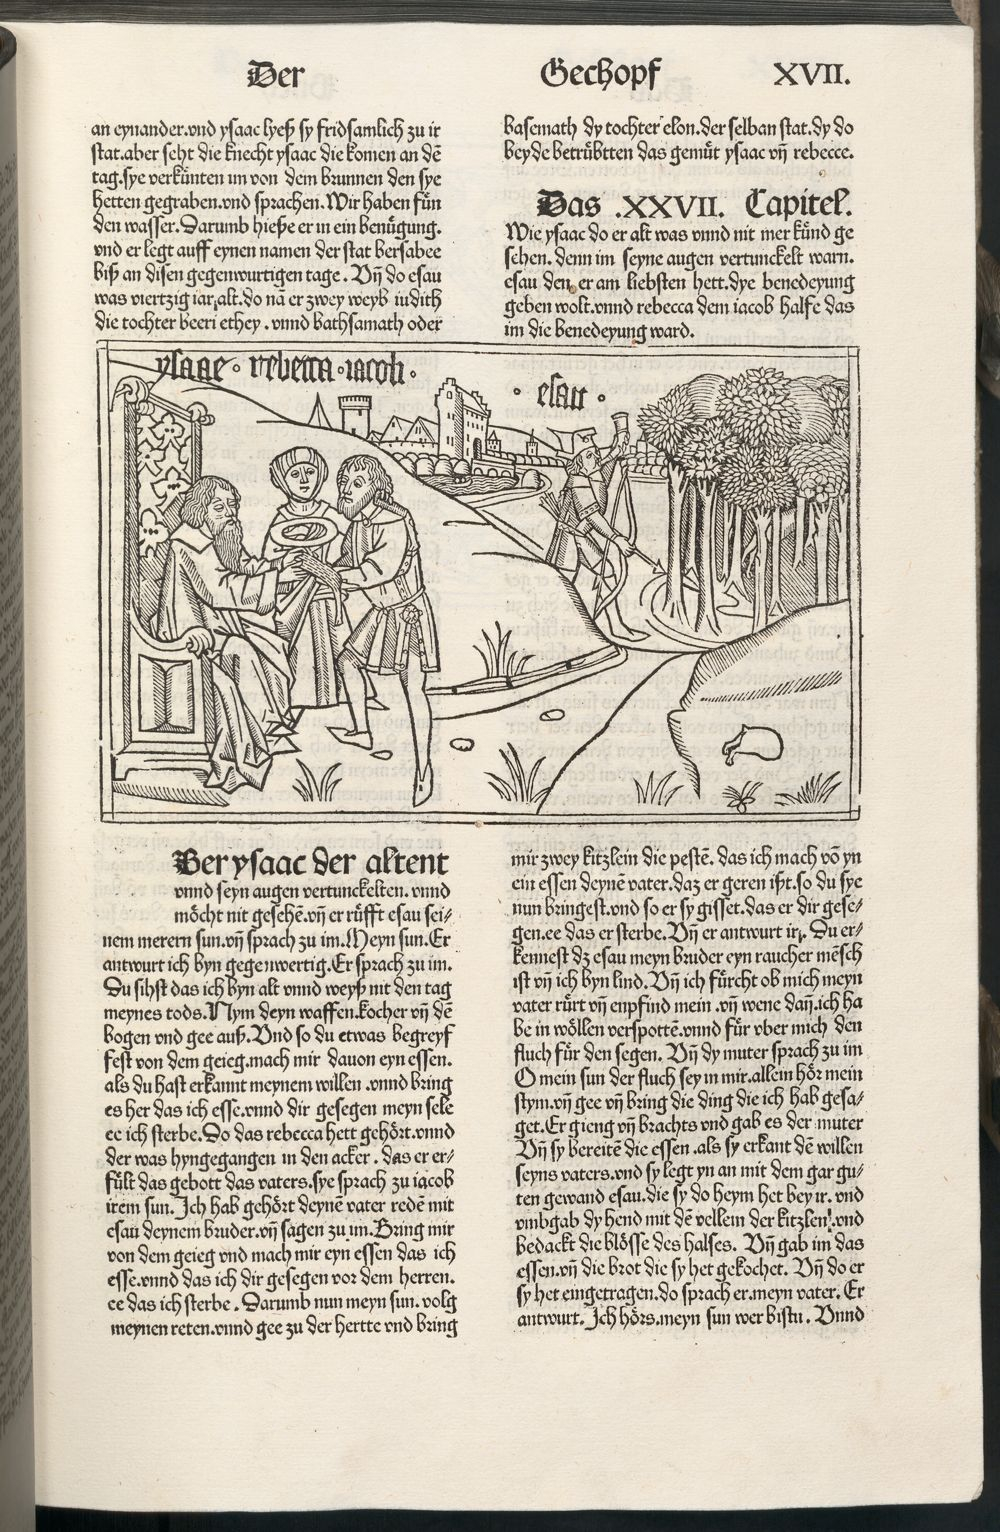 Der Gechopf XVII.
an eynander.vnd ysaac lyeß sy fridsamlich zu ir
stat.aber seht die knecht ysaac die komen an dē
tag.sye verkünten im von dem brunnen den sye
hetten gegraben.vnd sprachen.Wir haben fun̄
den wasser.Darumb hieße er in ein benügung.
vnd er legt auff eynen namen der stat bersabee
biß an disen gegenwurtigen tage. Vn̄ do esau
was viertzig iar alt.do nā er zwey weyb iudith
die tochter beeri ethey. vnnd bathsamath oder
basemath dy tochter elon.der selban stat.dy do
beyde betrübtten das gemüt ysaac vn̄ rebecce.
Das .XXVII. Capitel.
Wie ysaac do er alt was vnnd nit mer künd ge
sehen. denn im seyne augen vertunckelt warn.
esau den er am liebsten hett.dye benedeyung
geben wolt.vnnd rebecca dem iacob halfe das
im die benedeyung ward.
ysaac · rebecca · iacob ·
· esau ·
Ber ysaac der altent
vnnd seyn augen vertunckelten. vnnd
möcht nit gesehē.vn̄ er rüfft esau sei⸗
nem merern sun.vn̄ sprach zu im.Meyn sun.Er
antwurt ich byn gegenwertig.Er sprach zu im.
Du sihst das ich byn alt vnnd weyß nit den tag
meynes tods.Nym deyn waffen.kocher vn̄ dē
bogen vnd gee auß.Vnd so du etwas begreyf
fest von dem geieg.mach mir dauon eyn essen.
als du hast erkannt meynem willen .vnnd bring
es her das ich esse.vnnd dir gesegen meyn sele
ee ich sterbe.Do das rebecca hett gehört.vnnd
der was hyngegangen in den acker . das er er⸗
fült das gebott das vaters.sye sprach zu iacob
irem sun. Ich hab gehört deynē vater redē mit
esau deynem bruder.vn̄ sagen zu im.Bring mir
von dem geieg vnd mach mir eyn essen das ich
esse.vnnd das ich dir gesegen vor dem herren.
ee das ich sterbe . Darumb nun meyn sun. volg
meynen reten.vnnd gee zu der hertte vnd bring
mir zwey kitzlein die pestē. das ich mach vō yn
ein essen deynē vater.daz er geren ißt.so du sye
nun bringest.vnd so er sy gisset.das er dir gese⸗
gen.ee das er sterbe. Vn̄ er antwurt ir. Du er⸗
kennest dz esau meyn bruder eyn raucher mēsch
ist vn̄ ich byn lind. Vn̄ ich fürcht ob mich meyn
vater rürt vn̄ enpfind mein .vn̄ wene dan̄.ich ha
be in wöllen verspottē.vnnd für vber mich den
fluch für den segen. Vn̄ dy muter sprach zu im
O mein sun der fluch sey in mir.allein hör mein
stym.vn̄ gee vn̄ bring die ding die ich hab gesa⸗
get.Er gieng vn̄ brachts vnd gab es der muter
Vn̄ sy bereitē die essen .als sy erkant dē willen
seyns vaters.vnd sy legt yn an mit dem gar gu⸗
ten gewand esau.die sy do heym het bey ir. vnd
vmbgab dy hend mit dē vellein der kitzlen.vnd
bedackt die blösse des halses. Vn̄ gab im das
essen.vn̄ die brot die sy het gekochet. Vn̄ do er
sy het eingetragen.do sprach er.meyn vater. Er
antwurt. Ich hörs.meyn sun wer bistu. Vnnd